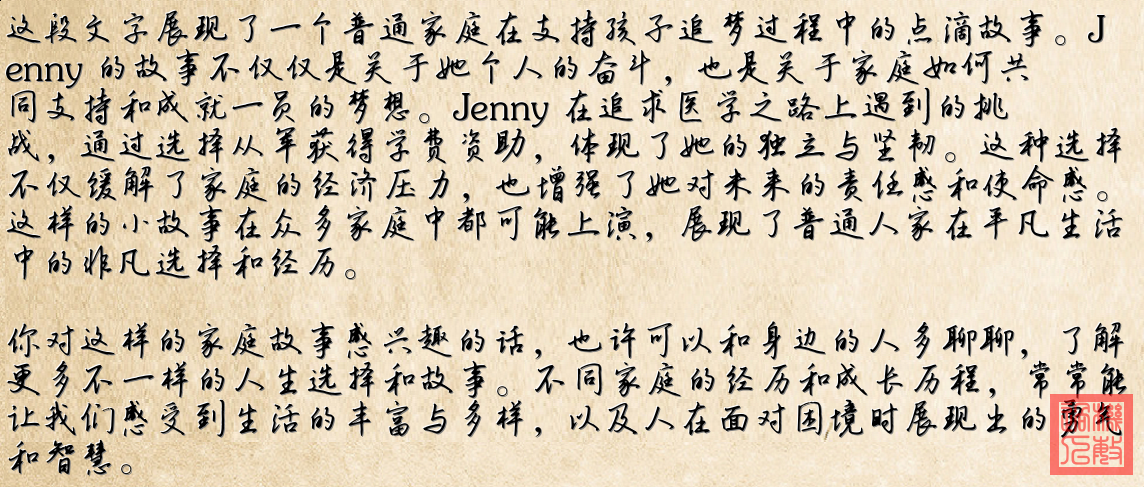 这段文字展现了一个普通家庭在支持孩子追梦过程中的点滴故事。J
enny 的故事不仅仅是关于她个人的奋斗，也是关于家庭如何共
同支持和成就一员的梦想。Jenny 在追求医学之路上遇到的挑
战，通过选择从军获得学费资助，体现了她的独立与坚韧。这种选择
不仅缓解了家庭的经济压力，也增强了她对未来的责任感和使命感。
这样的小故事在众多家庭中都可能上演，展现了普通人家在平凡生活
中的非凡选择和经历。
你对这样的家庭故事感兴趣的话，也许可以和身边的人多聊聊，了解
更多不一样的人生选择和故事。不同家庭的经历和成长历程，常常能
让我们感受到生活的丰富与多样，以及人在面对困境时展现出的勇气
和智慧。